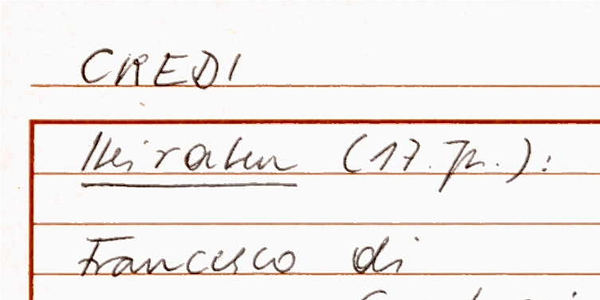 CREDI
Heiraten (17. Jh.):
Francesco di